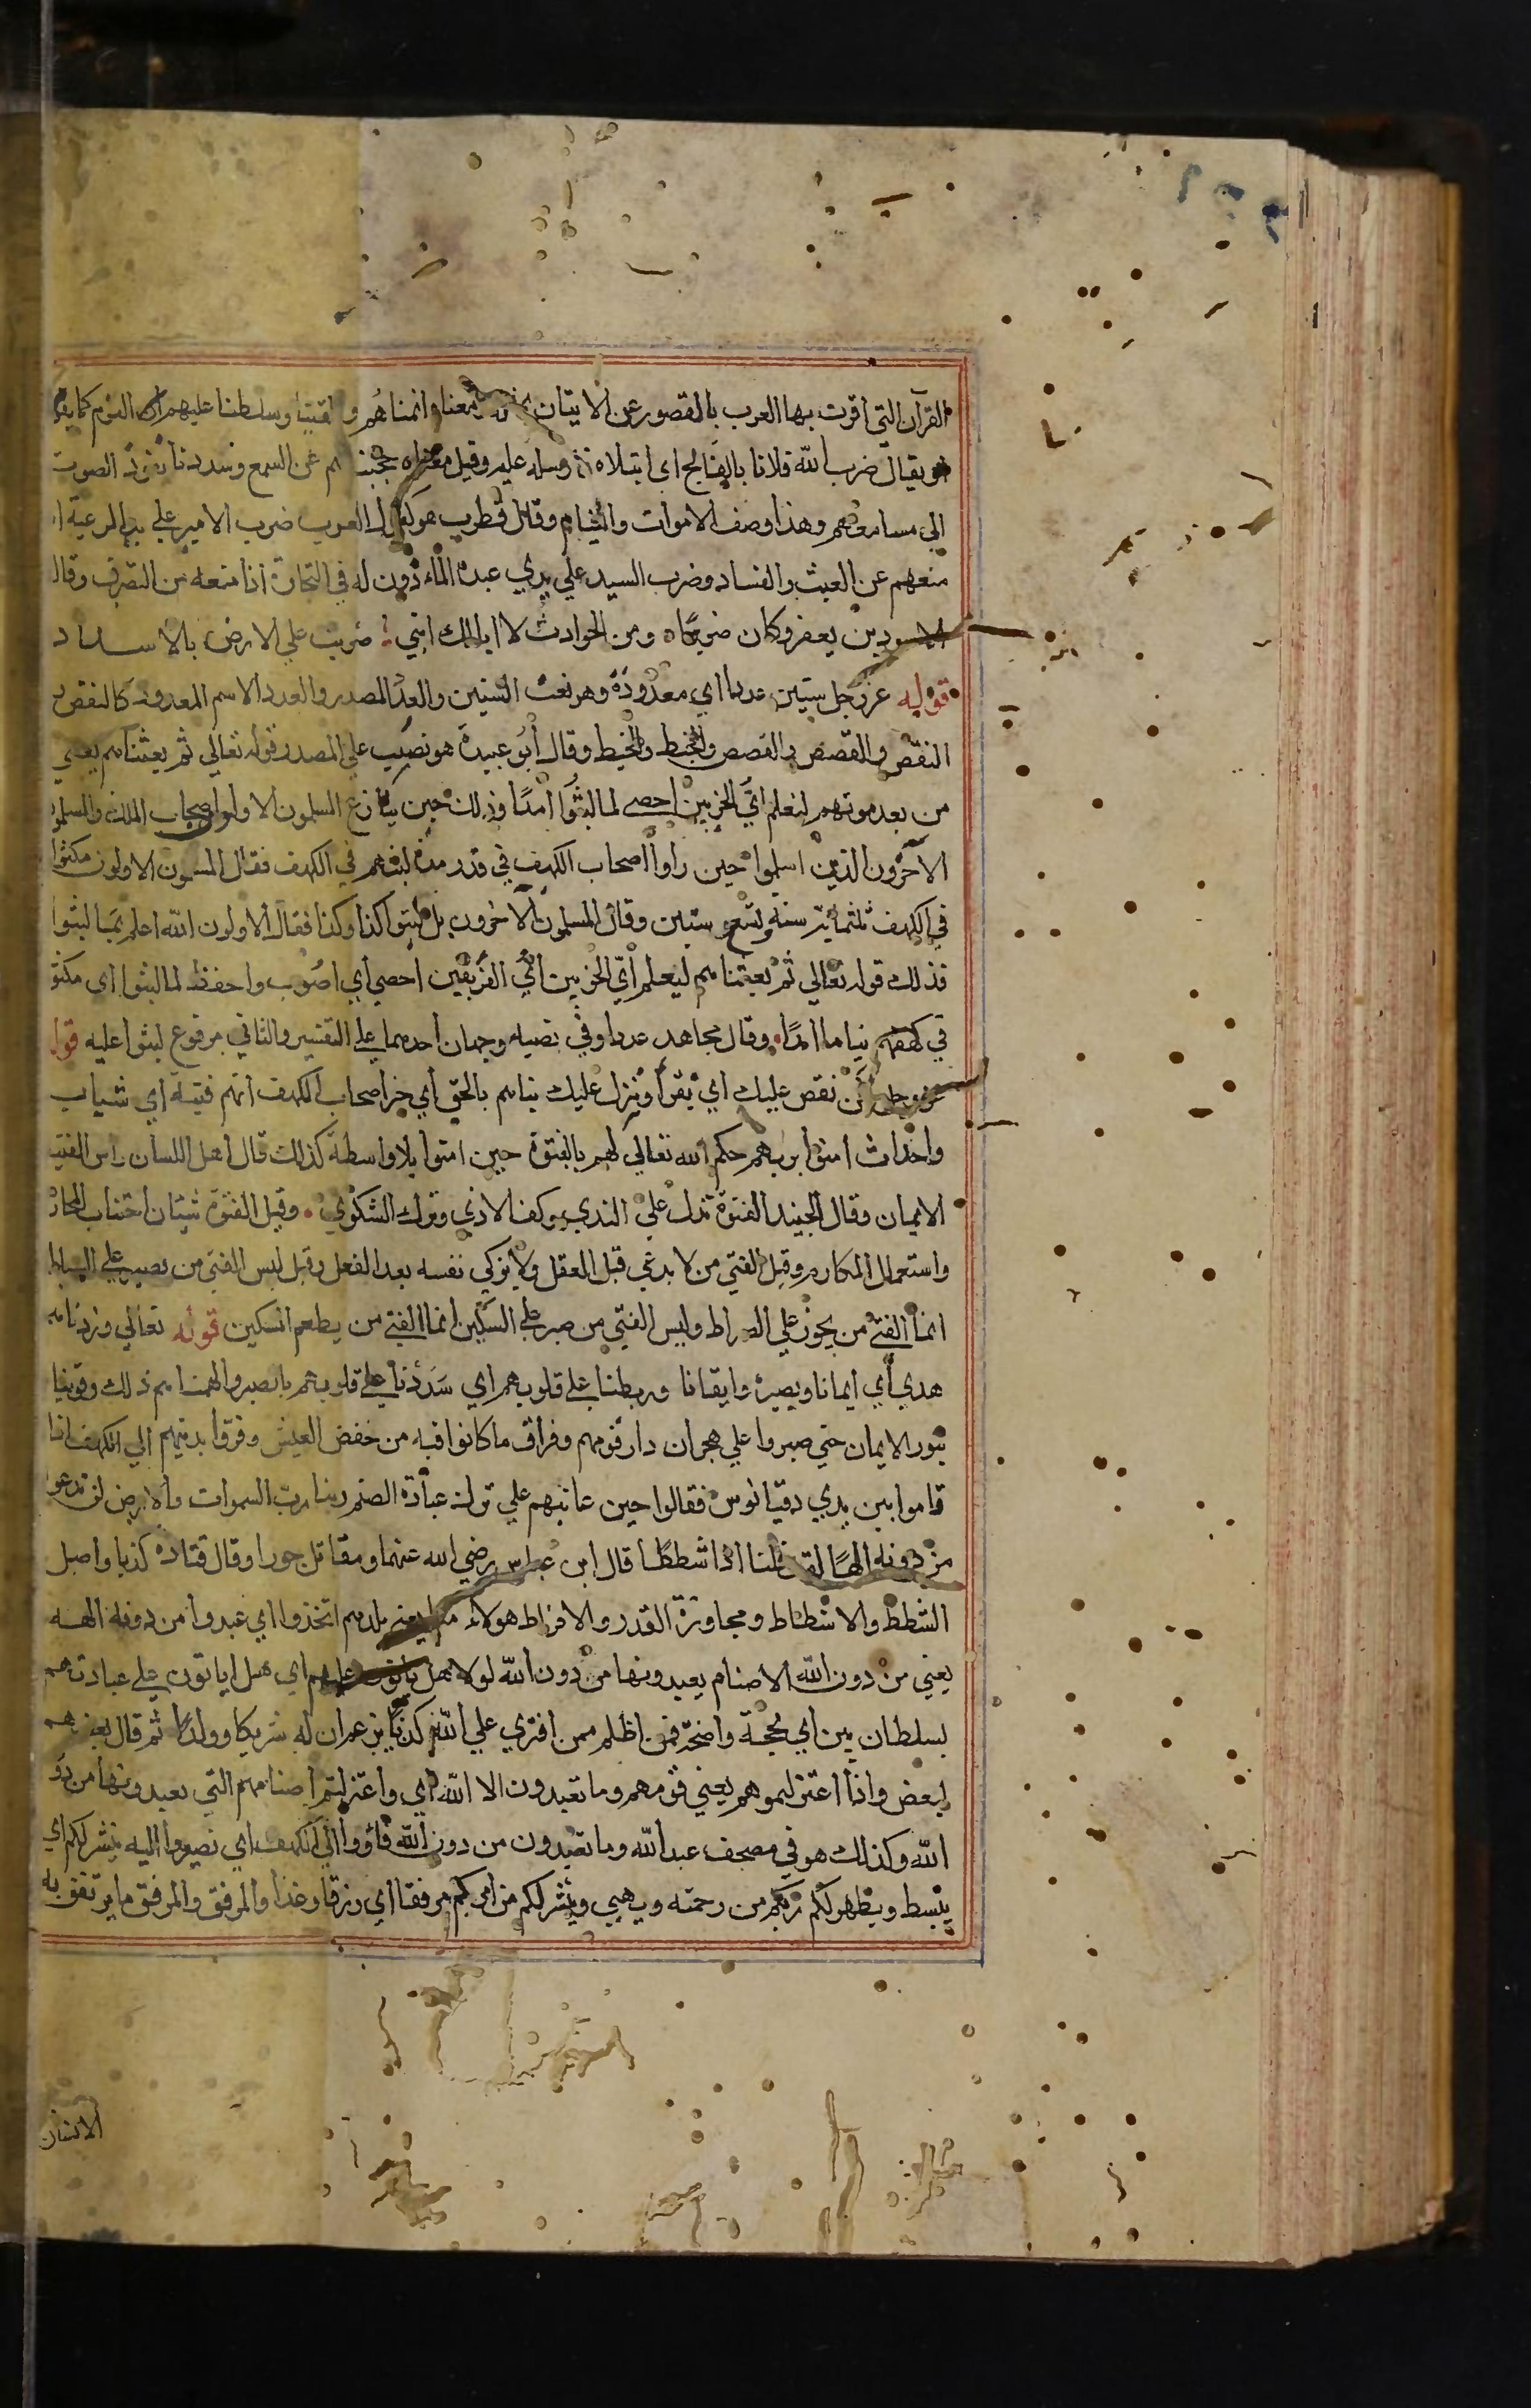 القرآن التي اقرت بها العرب بالقصور عن الاتيان بمثله معناه انمناهم والقينا وسلطنا عليهم النوم كما يقو
ويقال ضرب الله فلانا بالفالج اي ابتلاه به وارسله عليه وقيل معناه حجبناهم عن السمع وسددنا نفوذ الصوت
الي مسامعهم وهذا وصف الاموات والنيام وقال قطرب هو كقول العرب ضرب الامير علي يد الرعية اذا
منعهم عن العبث والفساد وضرب السيد علي يدي عبده الماذون له في التجارة اذا منعه من التصرف وقال
الاسود بن يعفر وكان ضريرا ومن الحوادث لا ابالك انني ضربت علي الارض بالاسداد
قوله عز وجل سنين عددا اي معدودة وهو نعت السنين والعد المصدر والعدد الاسم المعدود كالنقض
النقض والقصص والقصص والخبط والخبط وقال أبو عبيدة هو نصب علي المصدر قوله تعالي ثم بعثناهم يعني
من بعد موتهم لنعلم ايّ الحزبين احصي لما لبثوا امدًا وذلك حين تنازع المسلمون الاولوا اصحاب الملك والمسلمو
الآخرون الذين اسلموا حين راوا اصحاب الكهف في قدر مدة لبثهم في الكهف فقال المسلمون الاولون مكثوا
في الكهف ثلثمائة سنة وتسع سنين وقال المسلمون الآخرون بل لبثوا كذا وكذا فقال الاولون الله اعلم بما لبثوا
فذلك قوله تعالي ثم بعثناهم ليعلم أيّ الحزبين أيّ الفريقين احصي اي اصوب واحفظ لما لبثوا اي مكثو
في كهفهم نياما امدًا وقال مجاهد عددا وفي نصبه وجهان احدهما علي التفسير والثاني مرفوع لبثوا عليه قوله
عز وجل نحن نقص عليك اي نقرأ وننزل عليك نباهم بالحق اي خبر اصحاب الكهف انهم فتية اي شباب
واحداث امنوا بربهم حكم الله تعالي لهم بالفتوة حين امنوا بلا واسطة كذلك قال اهل اللسان راس الفتو
الايمان وقال الجنيد الفتوة بذل الندي وكف الاذي وترك الشكوي وقيل الفتوة شيئان اجتناب المحار
واستعمال المكارم وقيل الفتي من لا يدعي قبل الفعل ولا يزكي نفسه بعد الفعل وقيل ليس الفتي من يصبر علي السياط
انما الفتي من يجوز علي الصراط وليس الفتي من صبر علي السكين انما الفتي من يطعم المسكين قوله تعالي وزدناهم
هدي أي ايمانا وبصيرة وايقانا وربطنا علي قلوبهم اي سددنا علي قلوبهم بالصبر والهمناهم ذلك وقويناهم
بنور الايمان حتي صبروا علي هجران دار قومهم وفراق ما كانوا فيه من خفض العيش وفروا بدينهم الي الكهف اذا
قاموا بين يدي دقيانوس فقالوا حين عاتبهم علي ترك عبادة الصنم ربنا رب السموات والارض لن ندعوا
من دونه الهًا لقد قلنا اذا شططا قال ابن عباس رضي الله عنهما ومقاتل جورا وقال قتاده كذبا واصل
الشطط والاشطاط ومجاوزة القدر والافراط هولاء قومنا يعني بلدهم اتخذوا اي عبدوا من دونه الهه
يعني من دون الله الاصنام يعبدونها من دون الله لولا هل ياتون عليهم اي هل اياتون علي عبادتهم
بسلطان بين اي بحجة واضحة فمن اظلم ممن افتري علي الله كذبا يزعم ان له شريكا وولدًا ثم قال بعضهم
لبعض واذا اعتزلتموهم يعني قومهم وما تعبدون الا الله اي واعتزلتم اصنامهم التي يعبدونها من دو
الله وكذلك هو في مصحف عبد الله وما تعبدون من دون الله فأووا الي الكهف اي نصيروا اليه ينشر لكم اي
يبسط ويظهر لكم ربكم من رحمته ويهيي وينشر لكم من امركم مرفقا اي رزقا رغدا والمرفق والمرفق ما يرتفق به
الانسان